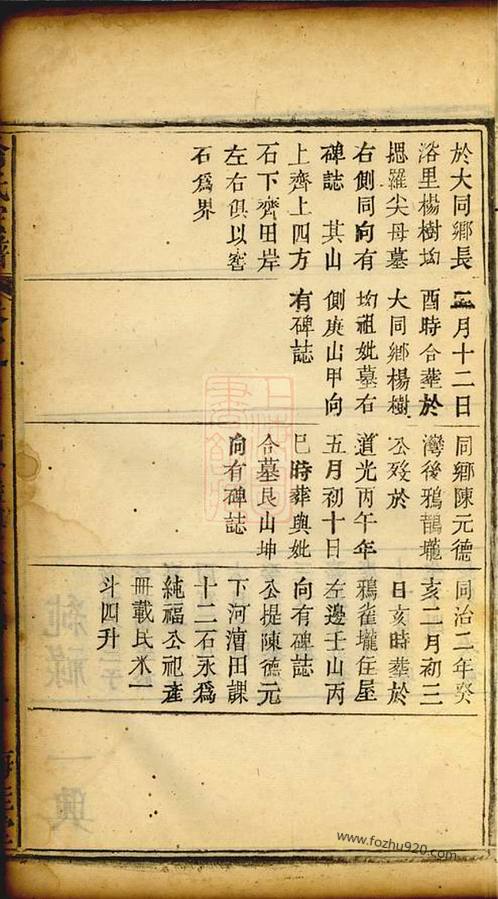 於大同鄉長
浴里楊樹坳
摁羅尖母墓
右側同向有
碑誌 其山
上齊上四方
石下齊田岸
左右俱以窖
石爲界
二月十二日
酉時合葬於
大同鄉楊樹
坳祖妣墓右
側庚山甲向
有碑誌
同鄉陳元德
灣後鴉鵲壠
公歿於
道光丙午年
五月初十日
巳時葬與妣
合墓艮山坤
向有碑誌
同治二年癸
亥二月初三
日亥時葬於
鴉雀壠庄屋
左邊壬山丙
向有碑誌
公提陳德元
下河漕田課
十二石永爲
純福公祀產
冊載民米一
斗四升
www.fozhu920.com